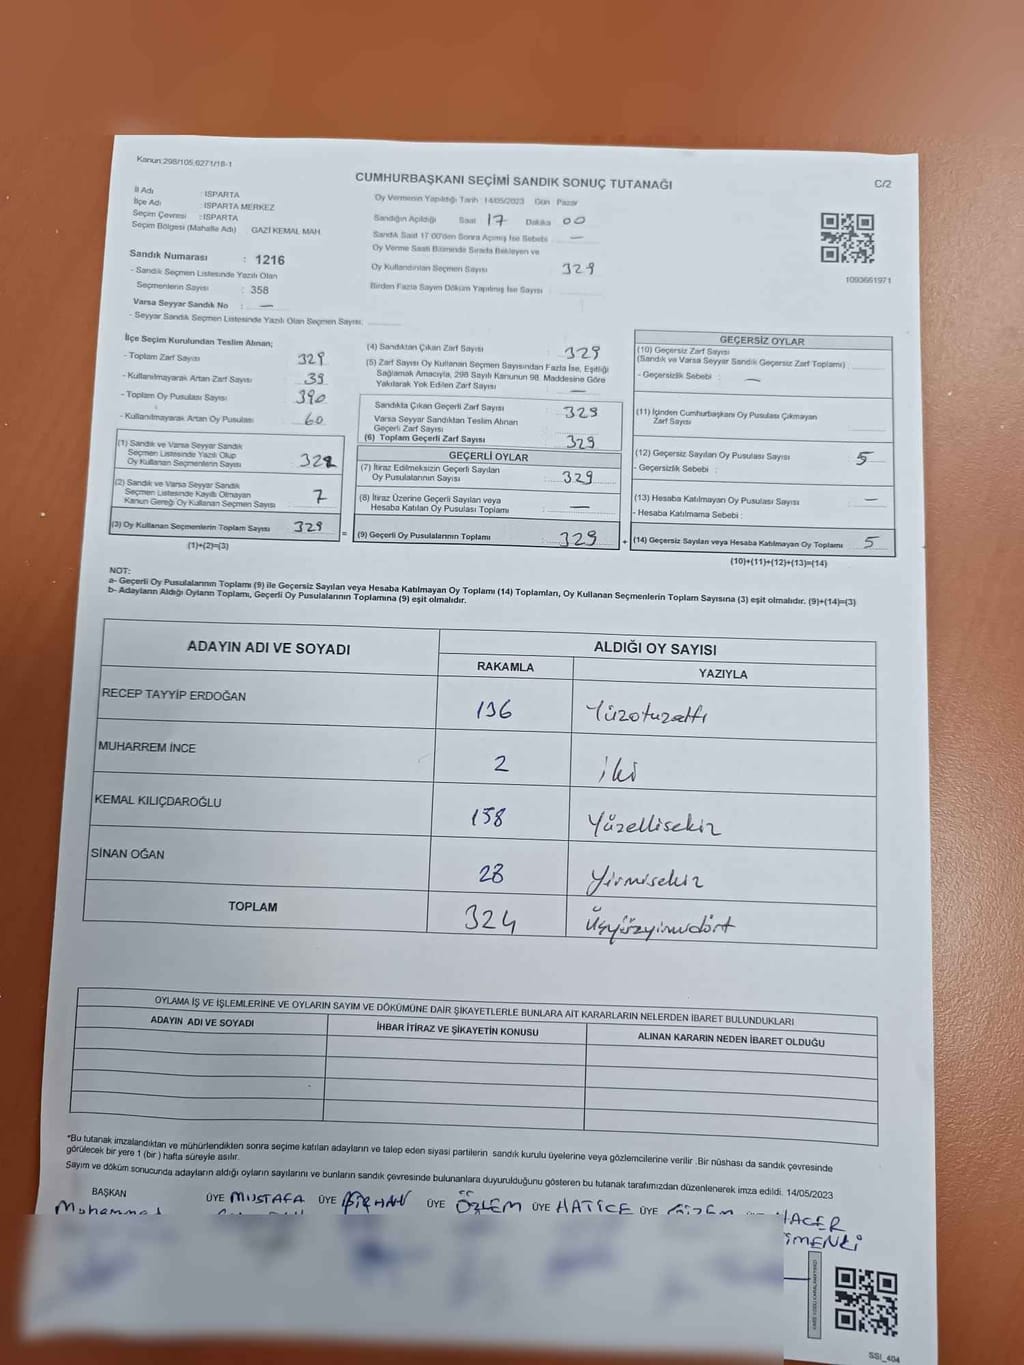 Kanun:298/105,6271/18-1
CUMHURBAŞKANI SEÇİMİ SANDIK SONUÇ TUTANAĞI
C/2
İl Adı : ISPARTA
İlçe Adı : ISPARTA MERKEZ
Seçim Çevresi : ISPARTA
Seçim Bölgesi (Mahalle Adı) GAZİ KEMAL MAH.
Sandık Numarası : 1216
- Sandık Seçmen Listesinde Yazılı Olan
Seçmenlerin Sayısı : 358
Varsa Seyyar Sandık No : —
- Seyyar Sandık Seçmen Listesinde Yazılı Olan Seçmen Sayısı:
Oy Vermenin Yapıldığı Tarih 14/05/2023 Gün Pazar
Sandığın Açıldığı Saat 17 Dakika 00
Sandık Saat 17:00'den Sonra Açılmış İse Sebebi : —
Oy Verme Saati Bitiminde Sırada Bekleyen ve
Oy Kullandırılan Seçmen Sayısı 329
Birden Fazla Sayım Döküm Yapılmış İse Sayısı :
1093661971
İlçe Seçim Kurulundan Teslim Alınan;
- Toplam Zarf Sayısı 329
- Kullanılmayarak Artan Zarf Sayısı 39
- Toplam Oy Pusulası Sayısı 390
- Kullanılmayarak Artan Oy Pusulası 60
(1) Sandık ve Varsa Seyyar Sandık
Seçmen Listesinde Yazılı Olup
Oy Kullanan Seçmenlerin Sayısı 322
(2) Sandık ve Varsa Seyyar Sandık
Seçmen Listesinde Kayıtlı Olmayan
Kanun Gereği Oy Kullanan Seçmen Sayısı 7
(3) Oy Kullanan Seçmenlerin Toplam Sayısı 329
(1)+(2)=(3)
(4) Sandıktan Çıkan Zarf Sayısı 329
(5) Zarf Sayısı Oy Kullanan Seçmen Sayısından Fazla İse, Eşitliği
Sağlamak Amacıyla, 298 Sayılı Kanunun 98. Maddesine Göre
Yakılarak Yok Edilen Zarf Sayısı : —
Sandıkta Çıkan Geçerli Zarf Sayısı : 329
Varsa Seyyar Sandıktan Teslim Alınan
Geçerli Zarf Sayısı
(6) Toplam Geçerli Zarf Sayısı 329
GEÇERLİ OYLAR
(7) İtiraz Edilmeksizin Geçerli Sayılan
Oy Pusulalarının Sayısı : 329
(8) İtiraz Üzerine Geçerli Sayılan veya
Hesaba Katılan Oy Pusulası Toplamı : —
= (9) Geçerli Oy Pusulalarının Toplamı : 329
GEÇERSİZ OYLAR
(10) Geçersiz Zarf Sayısı
(Sandık ve Varsa Seyyar Sandık Geçersiz Zarf Toplamı)
- Geçersizlik Sebebi : —
(11) İçinden Cumhurbaşkanı Oy Pusulası Çıkmayan
Zarf Sayısı
(12) Geçersiz Sayılan Oy Pusulası Sayısı 5
- Geçersizlik Sebebi :
(13) Hesaba Katılmayan Oy Pusulası Sayısı —
- Hesaba Katılmama Sebebi :
+ (14) Geçersiz Sayılan veya Hesaba Katılmayan Oy Toplamı 5
(10)+(11)+(12)+(13)=(14)
NOT:
a- Geçerli Oy Pusulalarının Toplamı (9) ile Geçersiz Sayılan veya Hesaba Katılmayan Oy Toplamı (14) Toplamları, Oy Kullanan Seçmenlerin Toplam Sayısına (3) eşit olmalıdır. (9)+(14)=(3)
b- Adayların Aldığı Oyların Toplamı, Geçerli Oy Pusulalarının Toplamına (9) eşit olmalıdır.
ADAYIN ADI VE SOYADI
ALDIĞI OY SAYISI
RAKAMLA YAZIYLA
RECEP TAYYİP ERDOĞAN 136 Yüzotuzaltı
MUHARREM İNCE 2 iki
KEMAL KILIÇDAROĞLU 158 Yüzellisekiz
SİNAN OĞAN 28 Yirmisekiz
TOPLAM 324 üçyüzyirmidört
OYLAMA İŞ VE İŞLEMLERİNE VE OYLARIN SAYIM VE DÖKÜMÜNE DAİR ŞİKAYETLERLE BUNLARA AİT KARARLARIN NELERDEN İBARET BULUNDUKLARI
ADAYIN ADI VE SOYADI İHBAR İTİRAZ VE ŞİKAYETİN KONUSU ALINAN KARARIN NEDEN İBARET OLDUĞU
*Bu tutanak imzalandıktan ve mühürlendikten sonra seçime katılan adayların ve talep eden siyasi partilerin sandık kurulu üyelerine veya gözlemcilerine verilir .Bir nüshası da sandık çevresinde
görülecek bir yere 1 (bir ) hafta süreyle asılır.
Sayım ve döküm sonucunda adayların aldığı oyların sayılarını ve bunların sandık çevresinde bulunanlara duyurulduğunu gösteren bu tutanak tarafımızdan düzenlenerek imza edildi. 14/05/2023
BAŞKAN ÜYE MUSTAFA ÜYE BİRHAN ÜYE ÖZLEM ÜYE HATİCE ÜYE GİZEM HACER
Muhammed
SSI_404